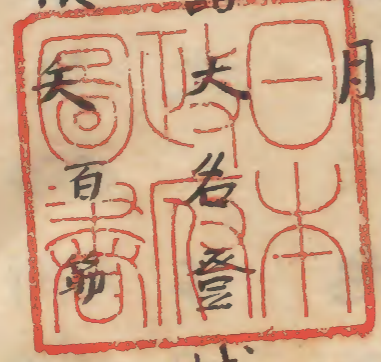 月
大名登
矢百筋
日本
政府
圖書